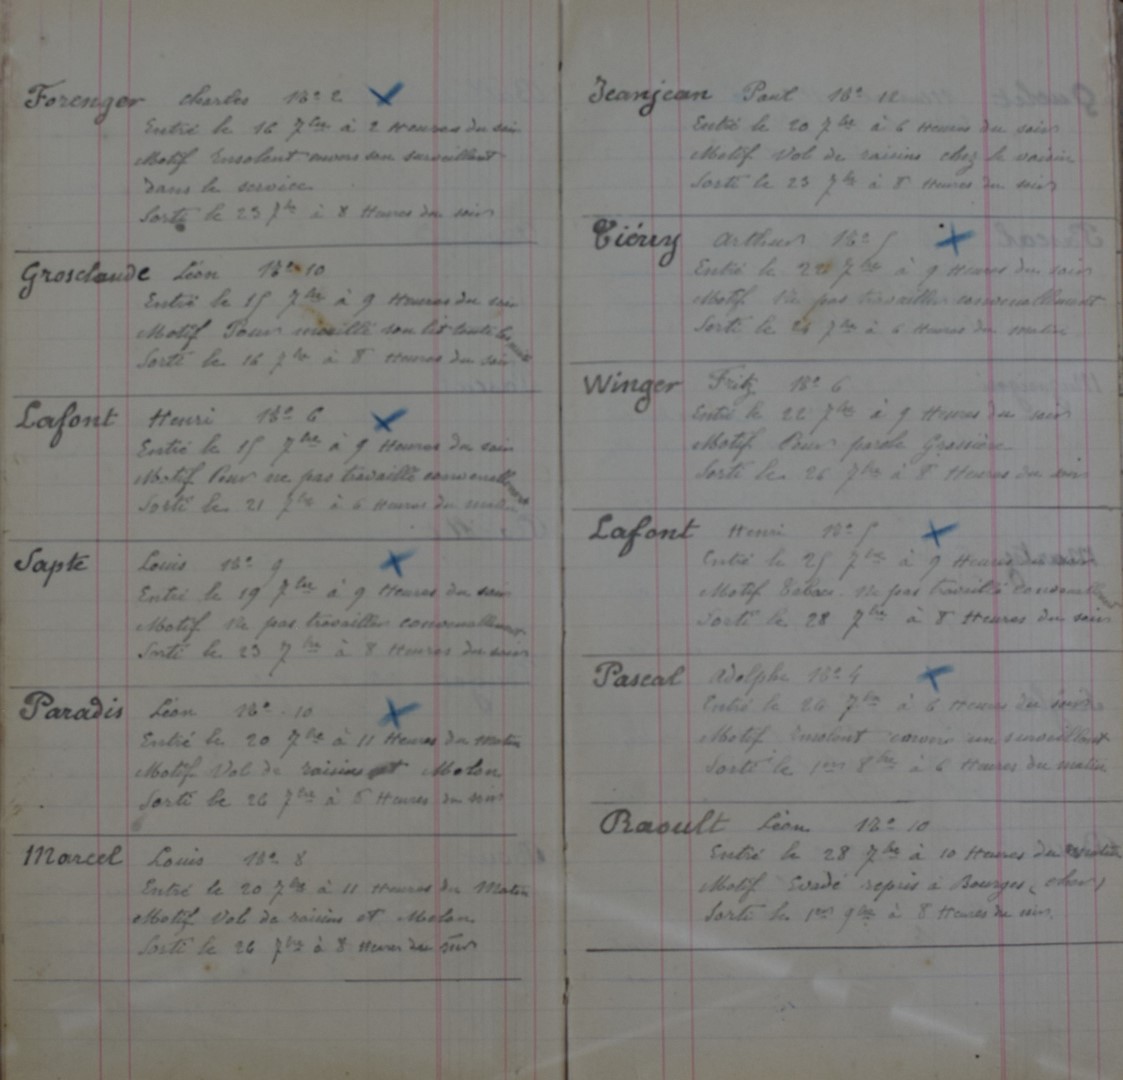 Forenger Charles Nº 2
Entré le 16 7bre à 2 Heures du soir
Motif Insolent envers son surveillant
dans le service
Sorti le 23 7bre à 8 Heures du soir
Grosclaude Léon Nº 10
Entré le 15 7bre à 9 Heures du soir
Motif Pour mouillé son lit toute les nuits
Sorti le 16 7bre à 8 Heures du soir
Lafont Henri Nº 6
Entré le 15 7bre à 9 Heures du soir
Motif Pour ne pas travaillé convenablement
Sorti le 21 7bre à 6 Heures du matin
Sapte Louis Nº 9
Entré le 19 7bre à 9 Heures du soir
Motif Ne pas travailler
Sorti le 23 7bre à 8 Heures du soir
Paradis Léon Nº 10
Entré le 20 7bre à 11 Heures du Matin
Motif Vol de raisins et Melon
Sorti le 26 7bre à 8 Heures du soir
Marcel Louis Nº 8
Entré le 20 7bre à 11 Heures du Matin
Motif Vol de raisins et Melon
Sorti le 26 7bre à 8 Heures du soir
Jeanjean Paul Nº 12
Entré le 20 7bre à 6 Heures du soir
Motif Vol de raisins chez le voisin
Sorti le 23 7bre à 8 Heures du soir
Arthur Nº 5
Entré le 22 7bre à 9 Heures du soir
Motif Ne pas travailler
Sorti le 26 7bre à 6 Heures du matin
Winger Fritz Nº 6
Entré le 22 7bre à 9 Heures du soir
Motif Pour parole Grossière
Sorti le 26 7bre à 8 Heures du soir
Lafont Henri Nº 5
Entré le 25 7bre à 9 Heures du soir
Motif Tabac. Ne pas travaillé
Sorti le 28 7bre à 8 Heures du soir
Pascal Adolphe Nº 4
Entré le 26 7bre à 6 Heures du soir
Motif Insolent envers un surveillant
Sorti le 1er 8bre à 6 Heures du matin
Raoult Léon Nº 10
Entré le 28 7bre à 10 Heures du matin
Motif Evadé repris à Bourges (cher)
Sorti le 1er 9bre à 8 Heures du soir